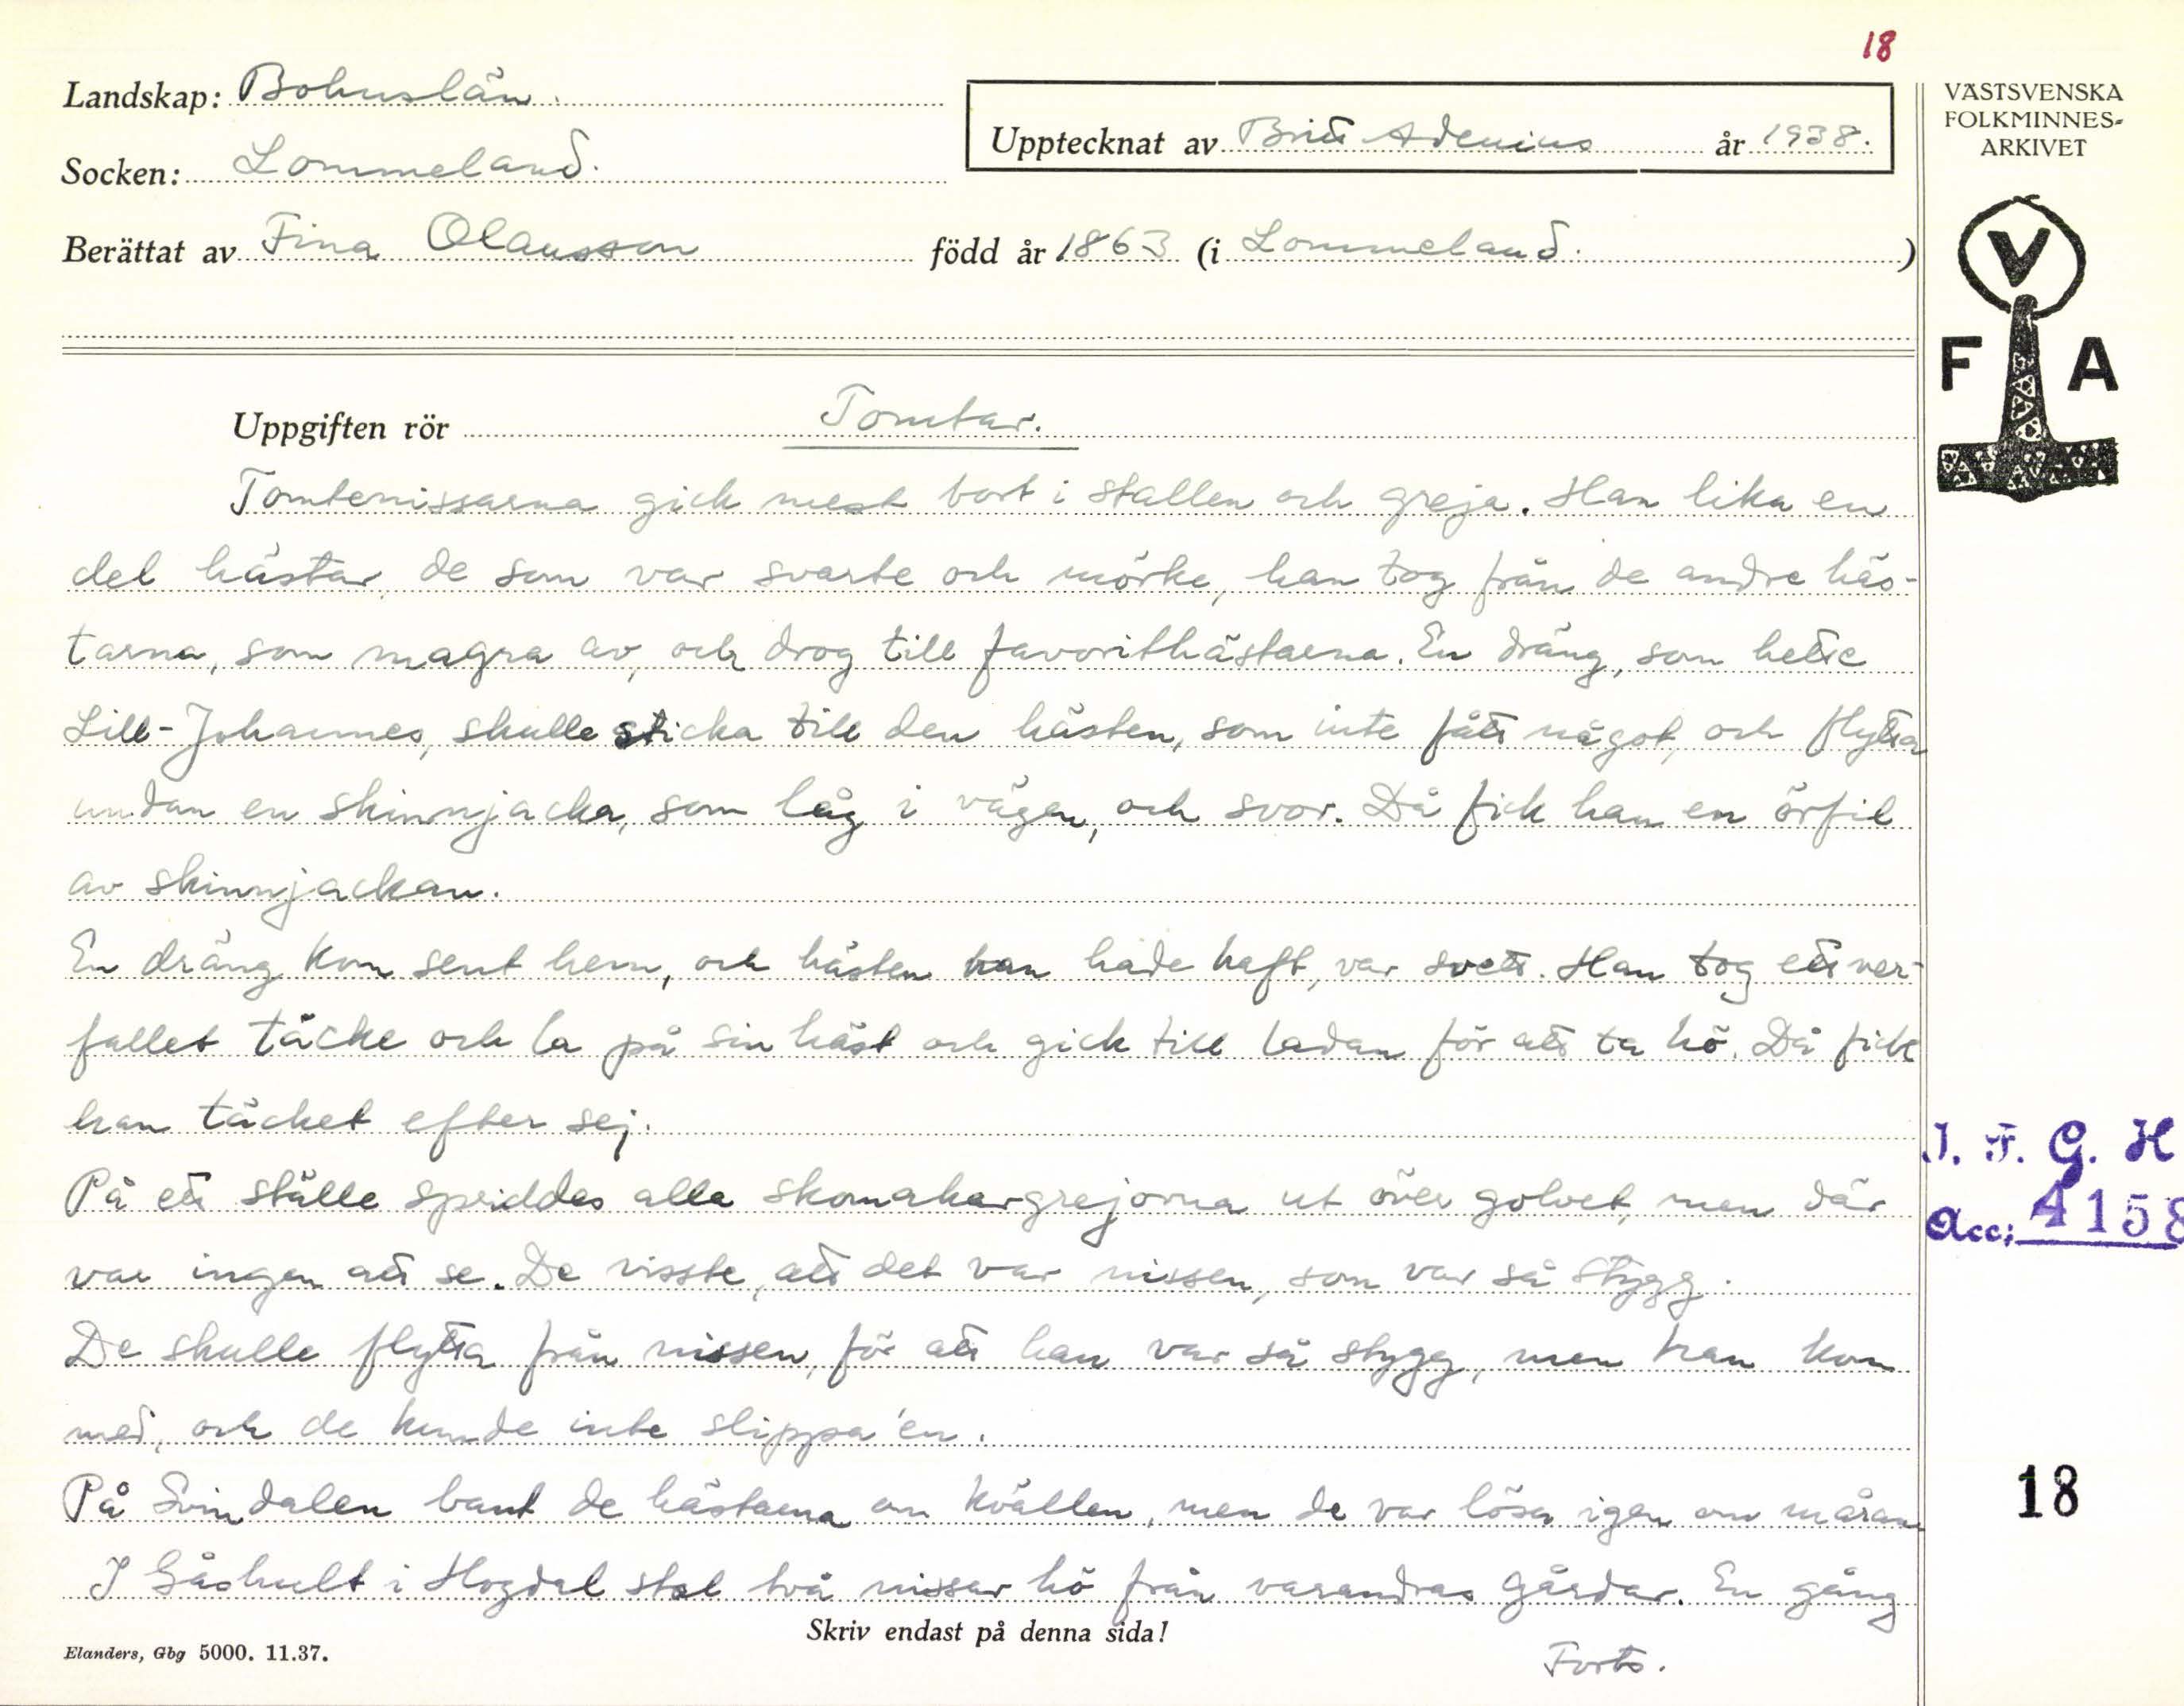 18
Landskap: Bohuslän.
Socken: Lommeland.
Upptecknat av Britt Adenius år 1938.
Berättat av Fina Olausson född år 1863 (i Lommeland.)
VÄSTSVENSKA
FOLKMINNES-
ARKIVET
V
F A
Uppgiften rör Tomtar.
Tomtenissarna gick mest bort i stallen och greja. Han lika en
del hästar, de som var svarte och mörke, han tog från de andre häs-
tarna, som magra av, och drog till favorithästarna. En dräng, som hette
Lill-Johannes, skulle sticka till den hästen, som inte fått något, och flytta
undan en skinnjacka, som låg i vägen, och svor. Då fick han en örfil
av skinnjackan.
En dräng kom sent hem, och hästen han hade haft, var svett. Han tog ett ver-
fallet täcke och la på sin häst och gick till ladan för att ta hö. Då fick
han täcket efter sej.
På ett ställe spriddes alla skomakargrejorna ut över golvet, men där
var ingen att se. De visste, att det var nissen, som var så stygg.
De skulle flytta från nissen, för att han var så stygg, men han kom
med, och de kunde inte slippa'en.
På Svindalen bant de hästarna om kvällen, men de var lösa igen om måran
I Gåshult i Hogdal stal två nissar hö från varandras gårdar. En gång
Skriv endast på denna sida!
Forts.
Elanders, Gbg 5000. 11.37.
I. F. G. H
Acc: 4158
18